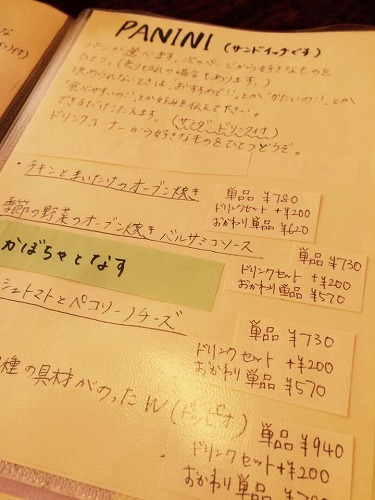 PANINI (サンドイッチです)
パンが選べます。次のページから好きなものを
ひとつ。(売り切れの場合もあります。)
決められないときは、おすすめで!!とか"かたいの!!"、とか
"食べやすいの!"とか好みを伝えて下さい。
できるだけこたえます。(サラダ・ドリンク付)
ドリンクコーナーから好きなものをひとつどうぞ。
・チキンとまいたけのオーブン焼き
単品 ¥780
ドリンクセット +¥200
おかわり単品 ¥620
季節の野菜のオーブン焼き バルサミコソース
かぼちゃとなす
単品 ¥730
ドリンクセット +¥200
おかわり単品 ¥570
シュトマトとペコリーノチーズ
単品 ¥730
ドリンクセット +¥200
おかわり単品 ¥570
種の具材がのったW(ドッピオ)
単品 ¥940
ドリンクセット +¥200
おかわり単品